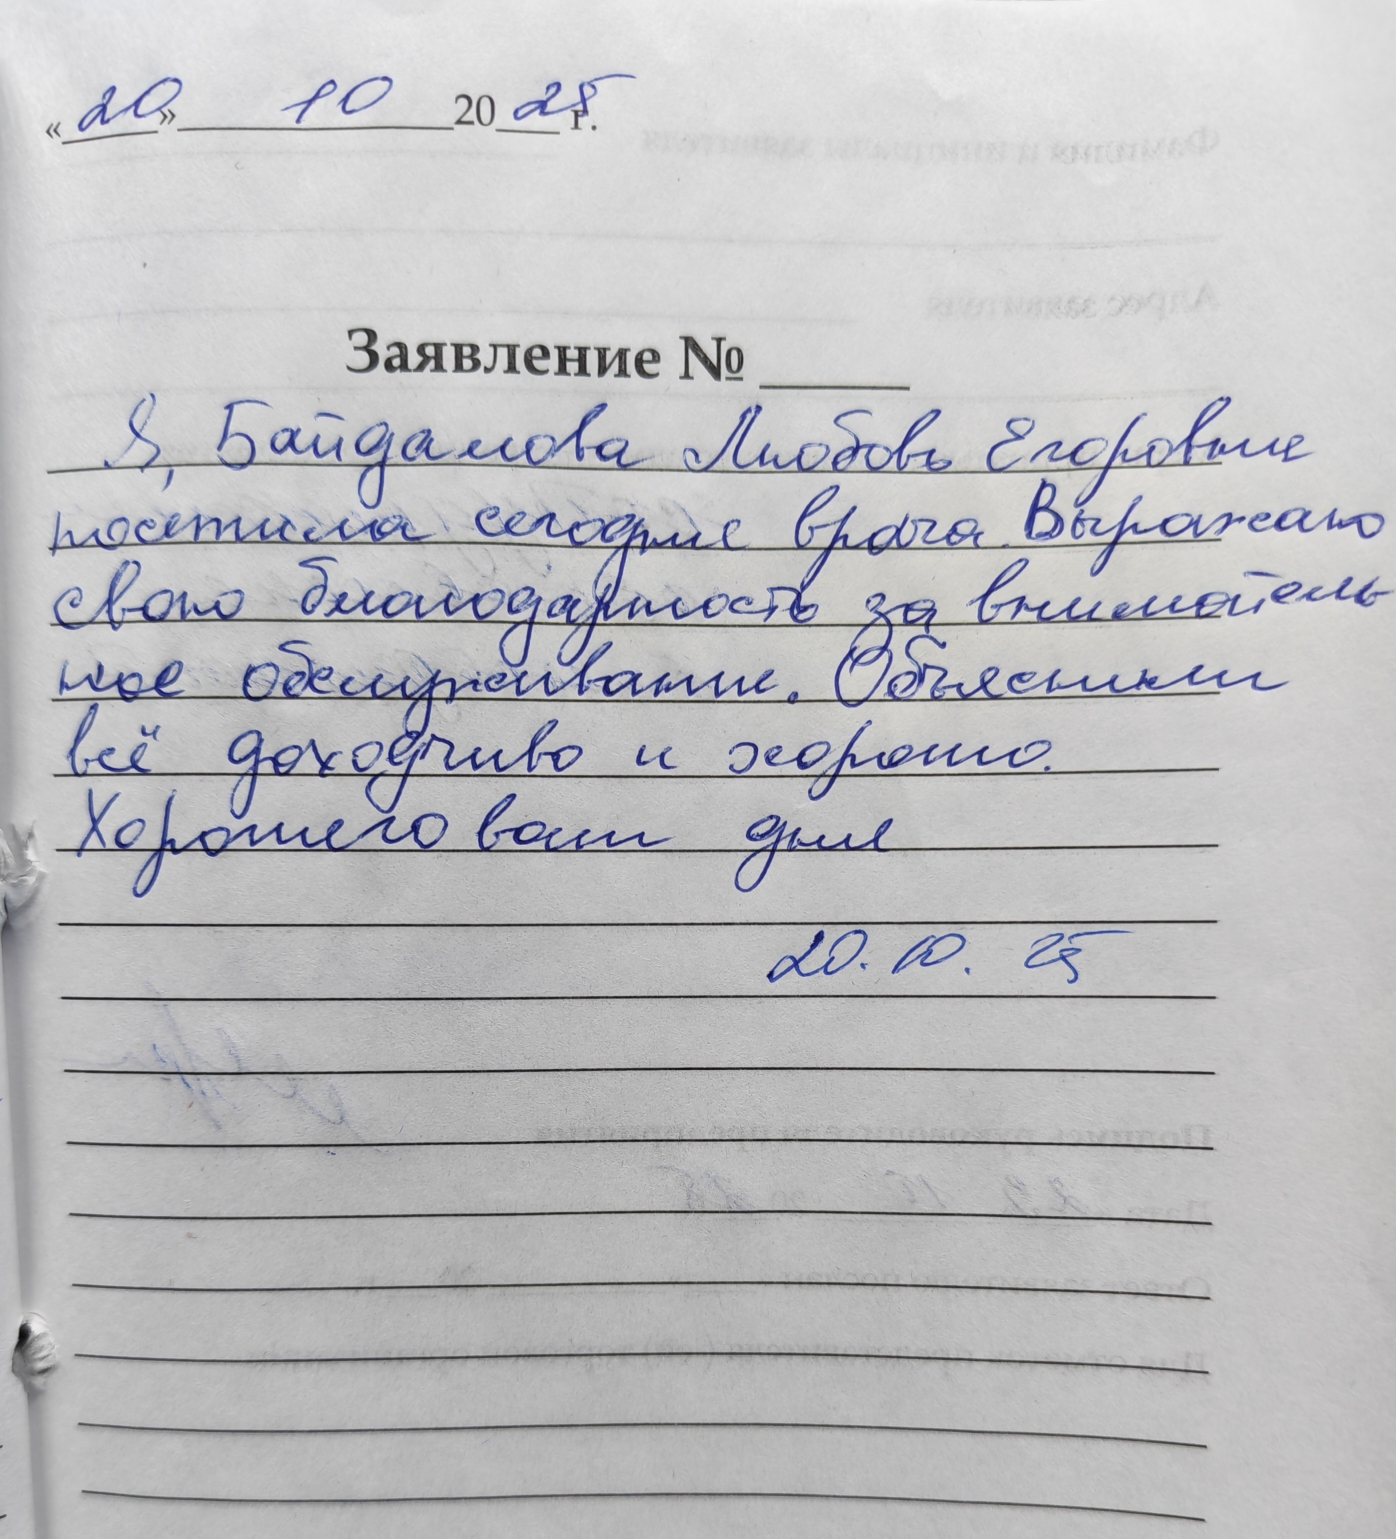 «20» 10 2025 г.
Заявление № ____
Я, Байдалова Любовь Егоровна
посетила сегодня врача. Выражаю
свою благодарность за вниматель
ное обслуживание. Объяснили
всё доходчиво и хорошо.
Хорошего вам дня
20.10.25